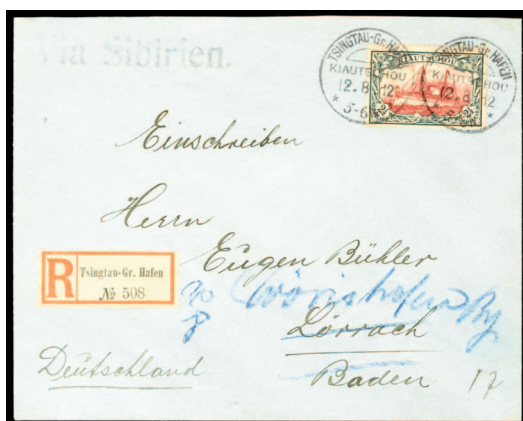 Via Sibirien.
TSINGTAU-Gr. HAFEN
KIAUTSCHOU
12.8 12
* 5-6N *
TSINGTAU-Gr. HAFEN
KIAUTSCHOU
12.8 12
KIAUTSCHOU
2½ 2½
Einschreiben
Herrn
Eugen Bühler
R Tsingtau-Gr. Hafen
№ 508
Wörishofen By
Lörrach
Deutschland
Baden
17